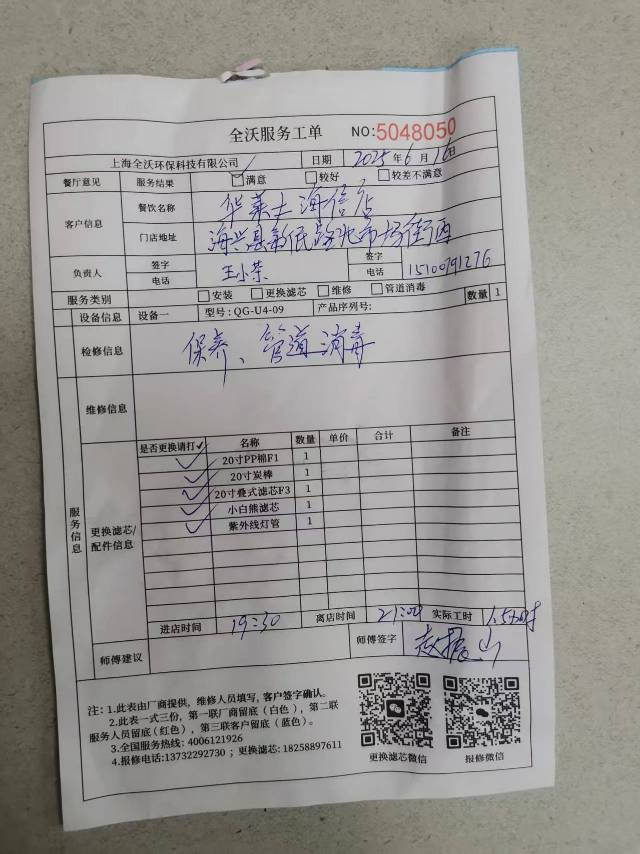 全沃服务工单 NO:5048050
上海全沃环保科技有限公司 日期 2025年6月16日
餐厅意见 服务结果 ☑满意 □较好 □较差不满意
客户信息 餐饮名称 华莱士海信店
门店地址 海兴县新低路北市场街西
负责人 签字 电话 王小荣 签字 电话 15100791276
服务类别 □安装 □更换滤芯 □维修 □管道消毒 数量 1
设备信息 设备一 型号: QG-U4-09 产品序列号:
检修信息 保养、管道消毒
维修信息
服务信息
更换滤芯/配件信息
是否更换请打✓ 名称 数量 单价 合计 备注
✓ 20寸PP棉F1 1
✓ 20寸炭棒 1
✓ 20寸叠式滤芯F3 1
✓ 小白熊滤芯 1
✓ 紫外线灯管 1
进店时间 19:30 离店时间 21:00 实际工时 1.5小时
师傅建议 师傅签字 赵振山
注: 1.此表由厂商提供, 维修人员填写, 客户签字确认。
2.此表一式三份, 第一联厂商留底(白色), 第二联
服务人员留底(红色), 第三联客户留底(蓝色)。
3.全国服务热线: 4006121926
4.报修电话:13732292730 ; 更换滤芯: 18258897611
更换滤芯微信 报修微信